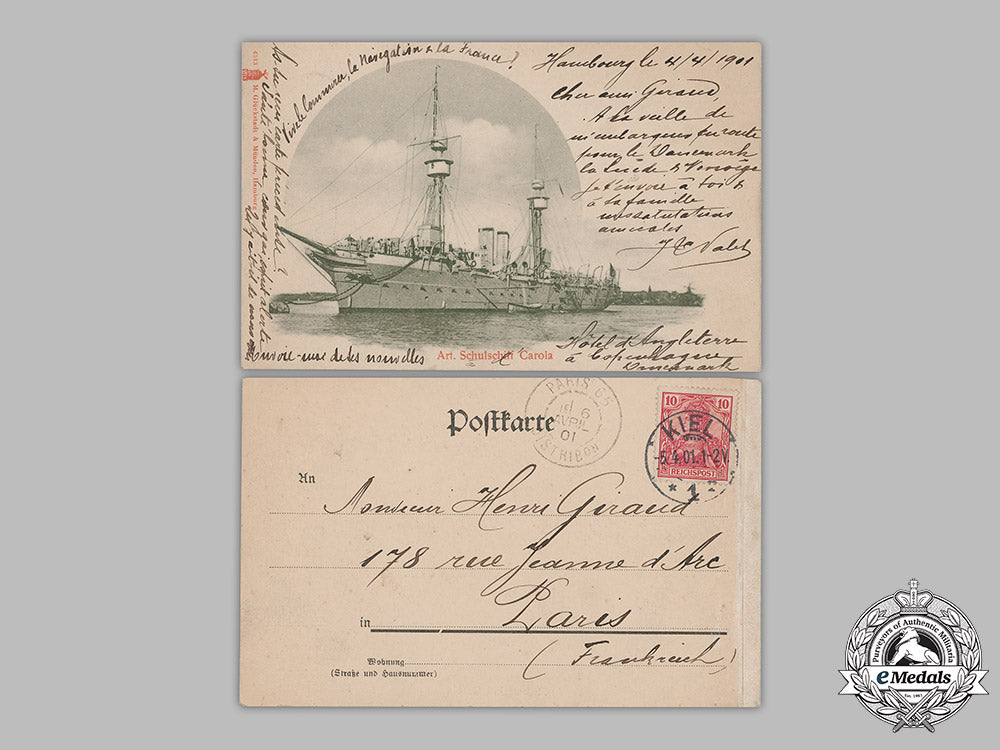 Vive le Commerce, la Navigation & la France!
Hambourg le 4/4/1901
Cher ami Giraud
A la veille de
m'embarquer en route
pour le Danemark
la Suède & Norvège
je t'envoie à toi &
à ta famille
mes salutations
amicales
Valet
Hôtel d'Angleterre
à Copenhague
Danemark
As tu reçu carte précédente?
Envoie-moi de tes nouvelles
Art. Schulschiff Carola
6513
M. Glückstadt & Münden, Hamburg
Postkarte
PARIS 65
6
AVRIL
01
DISTRIBON
10 10
REICHSPOST
KIEL
-5.4.01.1-2V.
* 1
An
Monsieur Henri Giraud
178 rue Jeanne d'Arc
in Paris
(Frankreich)
Wohnung
(Straße und Hausnummer)
Purveyors of Authentic Militaria
eMedals